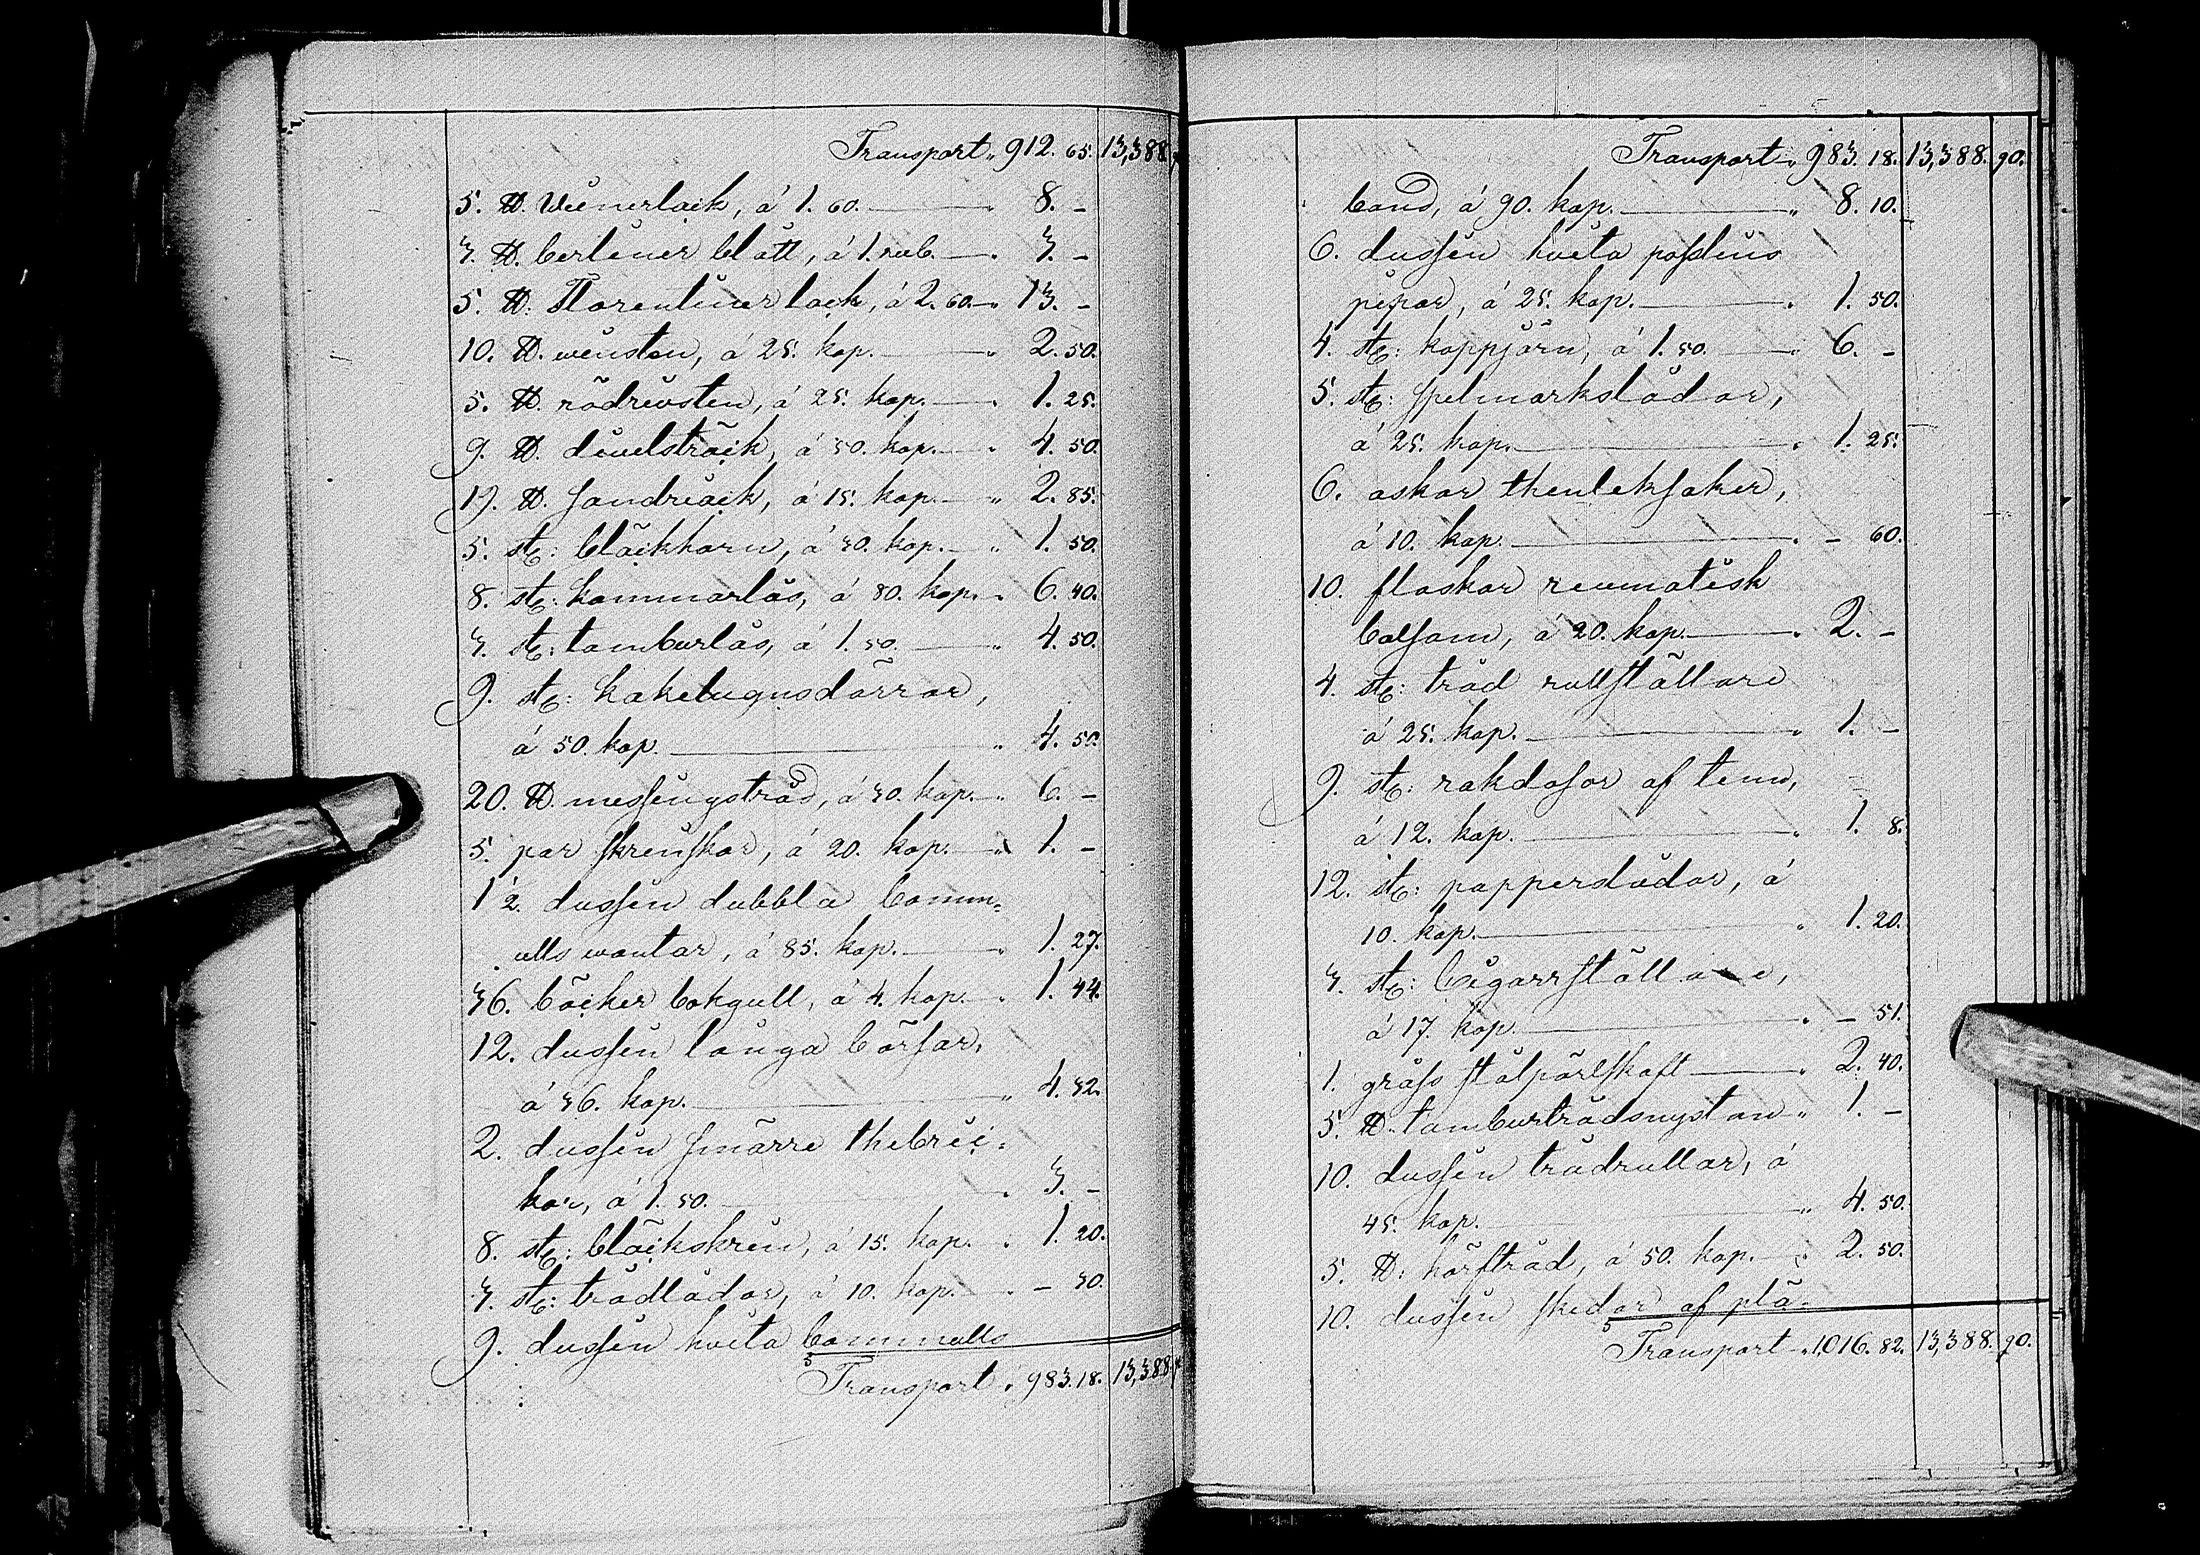 Transport „ 912. 65. 13,388
5. ℔. Wienerlack, á 1. 60. „ 8. –
3. ℔. berliner blått, á 1. rub. „ 3. –
5. ℔. Florentinerlack, á 2. 60. „ 13. –
10. ℔. winsten, á 25. kop. „ 2. 50.
5. ℔. rödrivsten, á 25. kop. „ 1. 25.
9. ℔. divelsträck, á 50. kop. „ 4. 50.
19. ℔. sandrack, á 15. kop. „ 2. 85.
5. st: bläckhorn, á 30. kop. „ 1. 50.
8. st: kammarlås, á 80. kop. „ 6. 40.
3. st: tamburlås, á 1. 50. „ 4. 50.
9. st: kakelugnsdörrar,
á 50. kop. „ 4. 50.
20. ℔. messingstråd, á 30. kop. „ 6. –
5. par skrinskor, á 20. kop. „ 1. –
1 1/2. dussin dubbla bomm-
ulls wantar, á 85. kop. „ 1. 27.
36. böcker bokgull, á 4. kop. „ 1. 44.
12. dussin långa börsar,
á 36. kop. „ 4. 32.
2. dussin smärre thebric-
kor, á 1. 50. „ 3. –
8. st: bläckskrin, á 15. kop. „ 1. 20.
3. st: trådlådor, á 10. kop. „ – 30.
9. dussin hvita bommulls
Transport „ 983. 18. 13,388
Transport „ 983. 18. 13,388. 90.
band, á 90. kop. „ 8. 10.
6. dussin hvita posslins
pipor, á 25. kop. „ 1. 50.
4. st: koppjärn, á 1. 50. „ 6. –
5. st: spelmarkslådor,
á 25. kop. „ 1. 25.
6. askar thenleksaker,
á 10. kop. „ – 60.
10. flaskor reumatisk
balsam, á 20. kop. „ 2. –
4. st: tråd rullställare
á 25. kop. „ 1. –
9. st: rakdosor af tenn,
á 12. kop. „ 1. 8.
12. st: papperslådor, á
10. kop. „ 1. 20.
3. st: Cigarrställare,
á 17. kop. „ – 51.
1. gross stålpärlskaft „ 2. 40.
5. ℔. tamburtrådsnystan „ 1. –
10. dussin trådrullar, á
45. kop. „ 4. 50.
5. ℔: hörftråd, á 50. kop. „ 2. 50.
10. dussin skedar af plä-
Transport „ 1,016. 82. 13,388. 90.